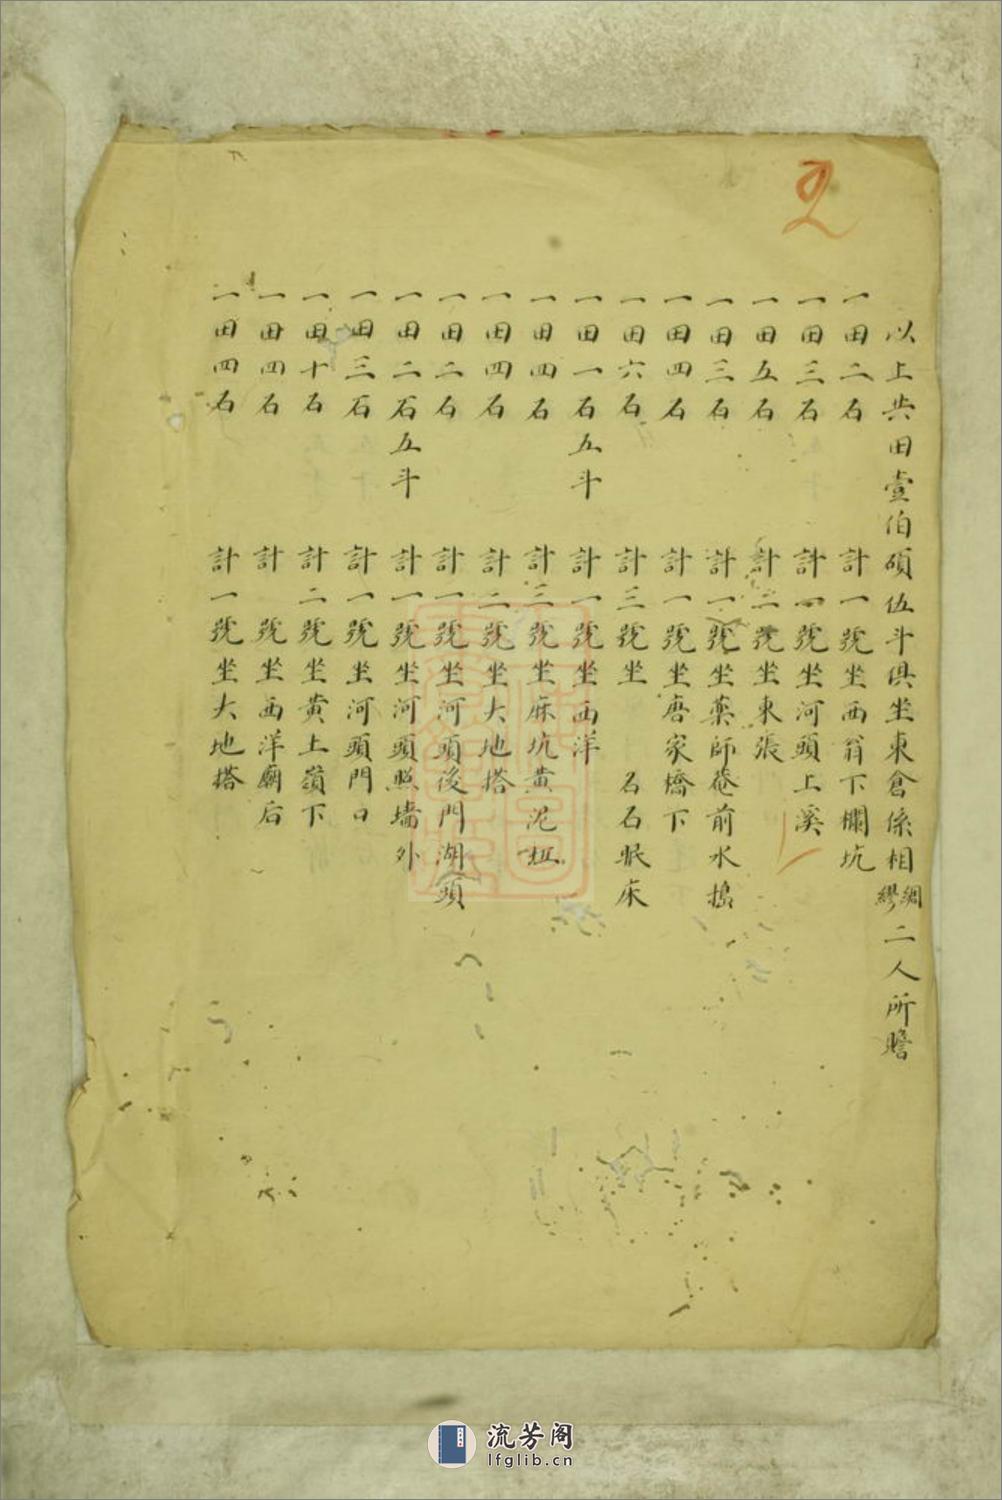 以上共田壹伯碩伍斗俱坐東倉係相綢繆二人所贍
一田二石 計一號坐西翁下欄坑
一田三石 計四號坐河頭上溪
一田五石 計二號坐東張
一田三石 計一號坐藥師菴前水搗
一田四石 計一號坐唐家橋下
一田六石 計三號坐 石石眠床
一田一石五斗 計一號坐西洋
一田四石 計三號坐麻坑黃泥
一田四石 計二號坐大地塔
一田二石 計一號坐河頭後門湖頭
一田二石五斗 計一號坐河頭照墻外
一田三石 計一號坐河頭門口
一田十石 計二號坐黃上嶺下
一田四石 計 號坐西洋廟后
一田四石 計一號坐大地塔
流芳阁
lfglib.cn